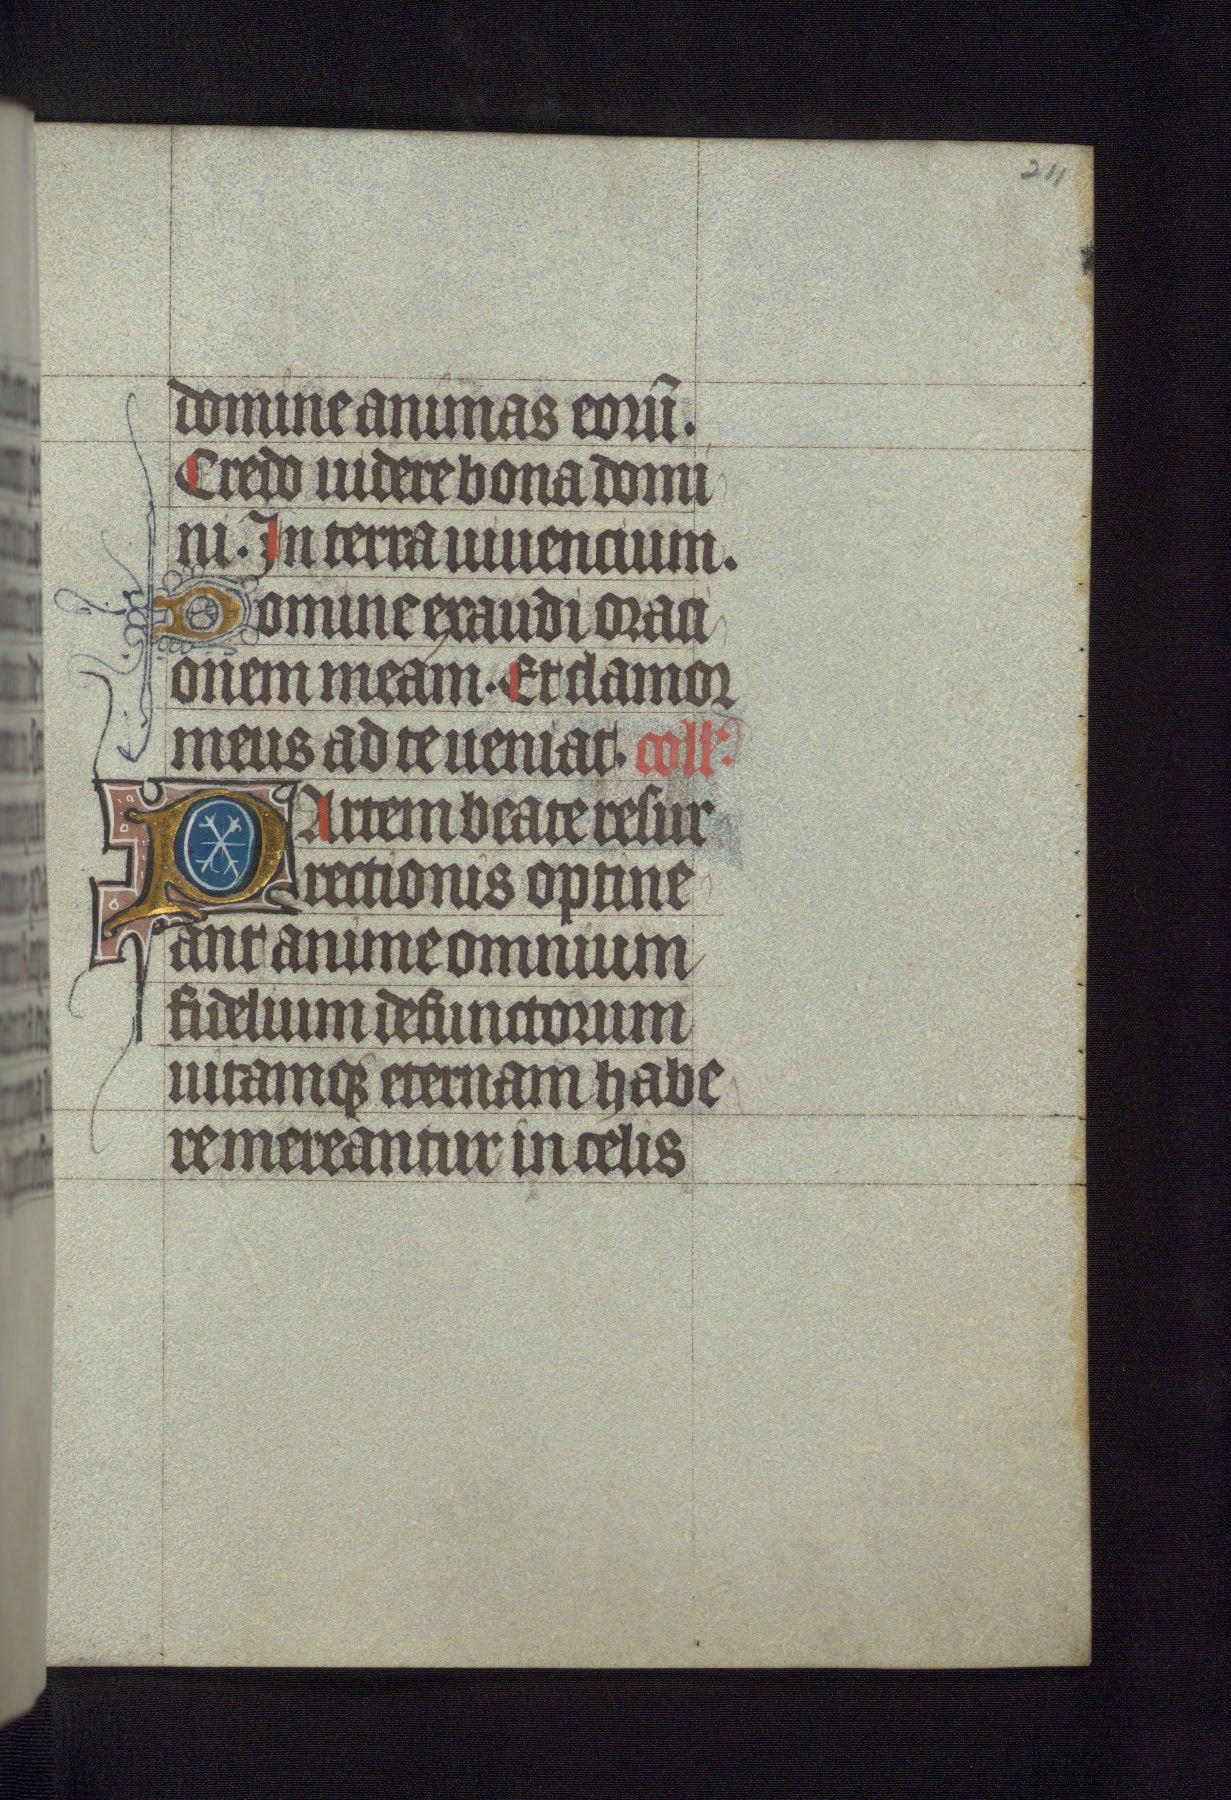 211
domine animas eorū.
Credo uidere bona domi
ni. In terra uiuencium.
Domine exaudi oraci
onem meam. Et clamor
meus ad te ueniat. coll'.
PArtem beate resur
rectionis optine
ant anime omnium
fidelium defunctorum
uitamqꝫ eternam habe
re mereantur in celis